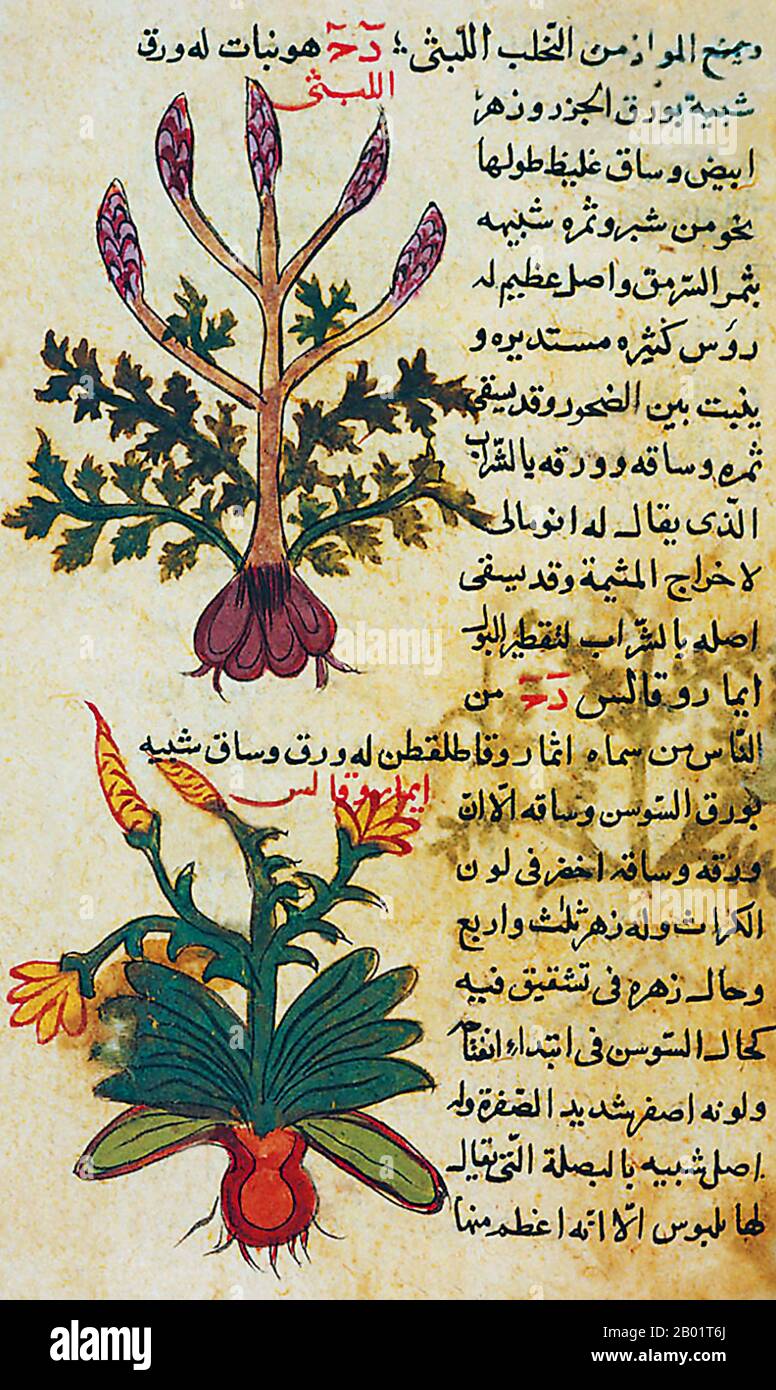 ويمنع المواد من التحلب اللبني ؛ دَحَ هو نبات له ورق
اللبثى
شبيه بورق الجزر وزهر
ابيض وساق غليظ طولها
نحو من شبر وثمره شبيهه
بثمر السرمق واصل عظيم له
رؤس كثيره مستديره و
ينبت بين الصخور وقد يسقى
ثمره وساقه وورقه بالشراب
الذى يقال له انومالى
لاخراج المشيمة وقد يسقى
اصله بالشراب لتقطير البول
ايماروقالس دَحَ من
الناس من سماه انماروقاطلقطن له ورق وساق شبيه
ايماروقالس
بورق السوسن وساقه الّا انّ
ورقه وساقه اخضر فى لون
الكراث وله زهر ثلث واربع
وحال زهره فى تشقيق فيه
كحال السوسن فى ابتداء انفتاح
ولونه اصفر شديد الصفرة وله
اصل شبيه بالبصلة التى يقال
لها بلبوس الّا انه اعظم منها
alamy
Image ID: 2B01T6J
www.alamy.com